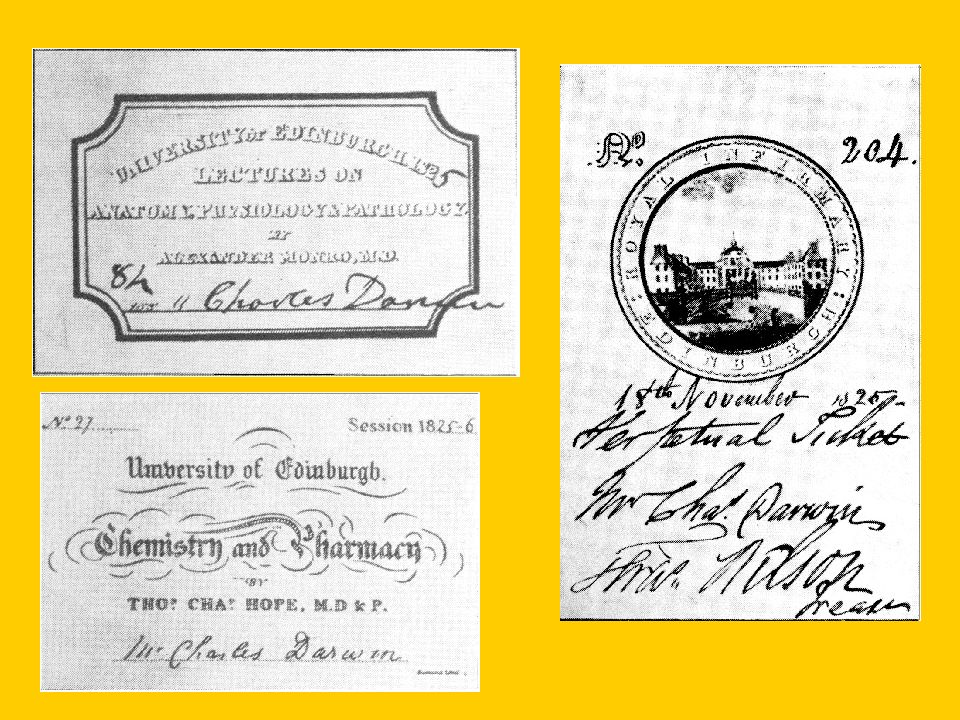 UNIVERSITY OF EDINBURGH 1825
LECTURES ON
ANATOMY, PHYSIOLOGY & PATHOLOGY.
BY
ALEXANDER MONRO, M.D.
84
FOR Charles Darwin
No. 27
Session 1825-6
University of Edinburgh.
Chemistry and Pharmacy
BY
THOS. CHAS. HOPE, M.D & P.
Mr Charles Darwin
No. 204.
ROYAL INFIRMARY
EDINBURGH
18th November 1825-
Perpetual Ticket
Mr Chas. Darwin
Wilson
Treasr